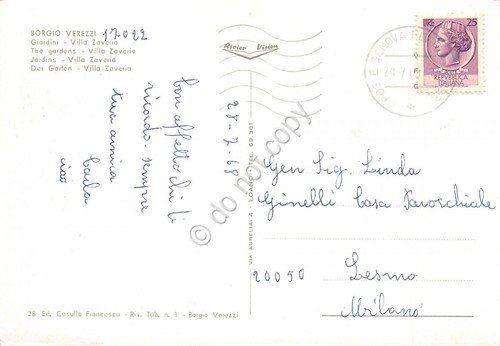 BORGIO VEREZZI 17022
Giardini - Villa Zaveria
The gardens - Villa Zaveria
Jardins - Villa Zaveria
Der Garten - Villa Zaveria
River Vision
25
28-7-68
con affetto chi ti
ricorda sempre
tua amica
Carla
ciao
Gen Sig. Linda
Ginelli Casa Parocchiale
20050 Lesmo
Milano
VIA AURELIA, 4 - LOANO - TEL. 69.301
28 Ed. Casulla Francesco - Riv. Tab. n. 1 - Borgio Verezzi
© do not copy